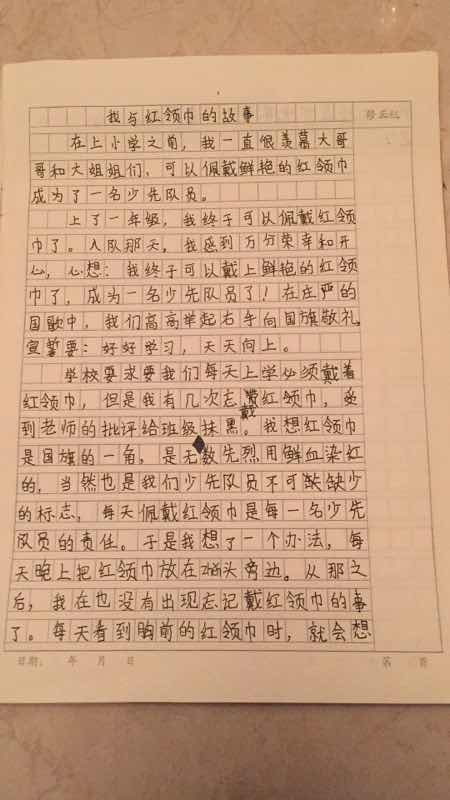 我与红领巾的故事
在上小学之前，我一直很羡慕大哥
哥和大姐姐们，可以佩戴鲜艳的红领巾
成为了一名少先队员。
上了一年级，我终于可以佩戴红领
巾了。入队那天，我感到万分荣幸和开
心，心想：我终于可以戴上鲜艳的红领
巾了，成为一名少先队员了！在庄严的
国歌中，我们高高举起右手向国旗敬礼，
宣誓要：好好学习，天天向上。
学校要求要我们每天上学必须戴着
红领巾，但是我有几次忘戴红领巾，受
到老师的批评给班级抹黑。我想红领巾
是国旗的一角，是无数先烈用鲜血染红
的，当然也是我们少先队员不可缺少
的标志，每天佩戴红领巾是每一名少先
队员的责任。于是我想了一个办法，每
天晚上把红领巾放在头旁边。从那之
后，我在也没有出现忘记戴红领巾的事
了。每天看到胸前的红领巾时，就会想
日期： 年 月 日 第 页